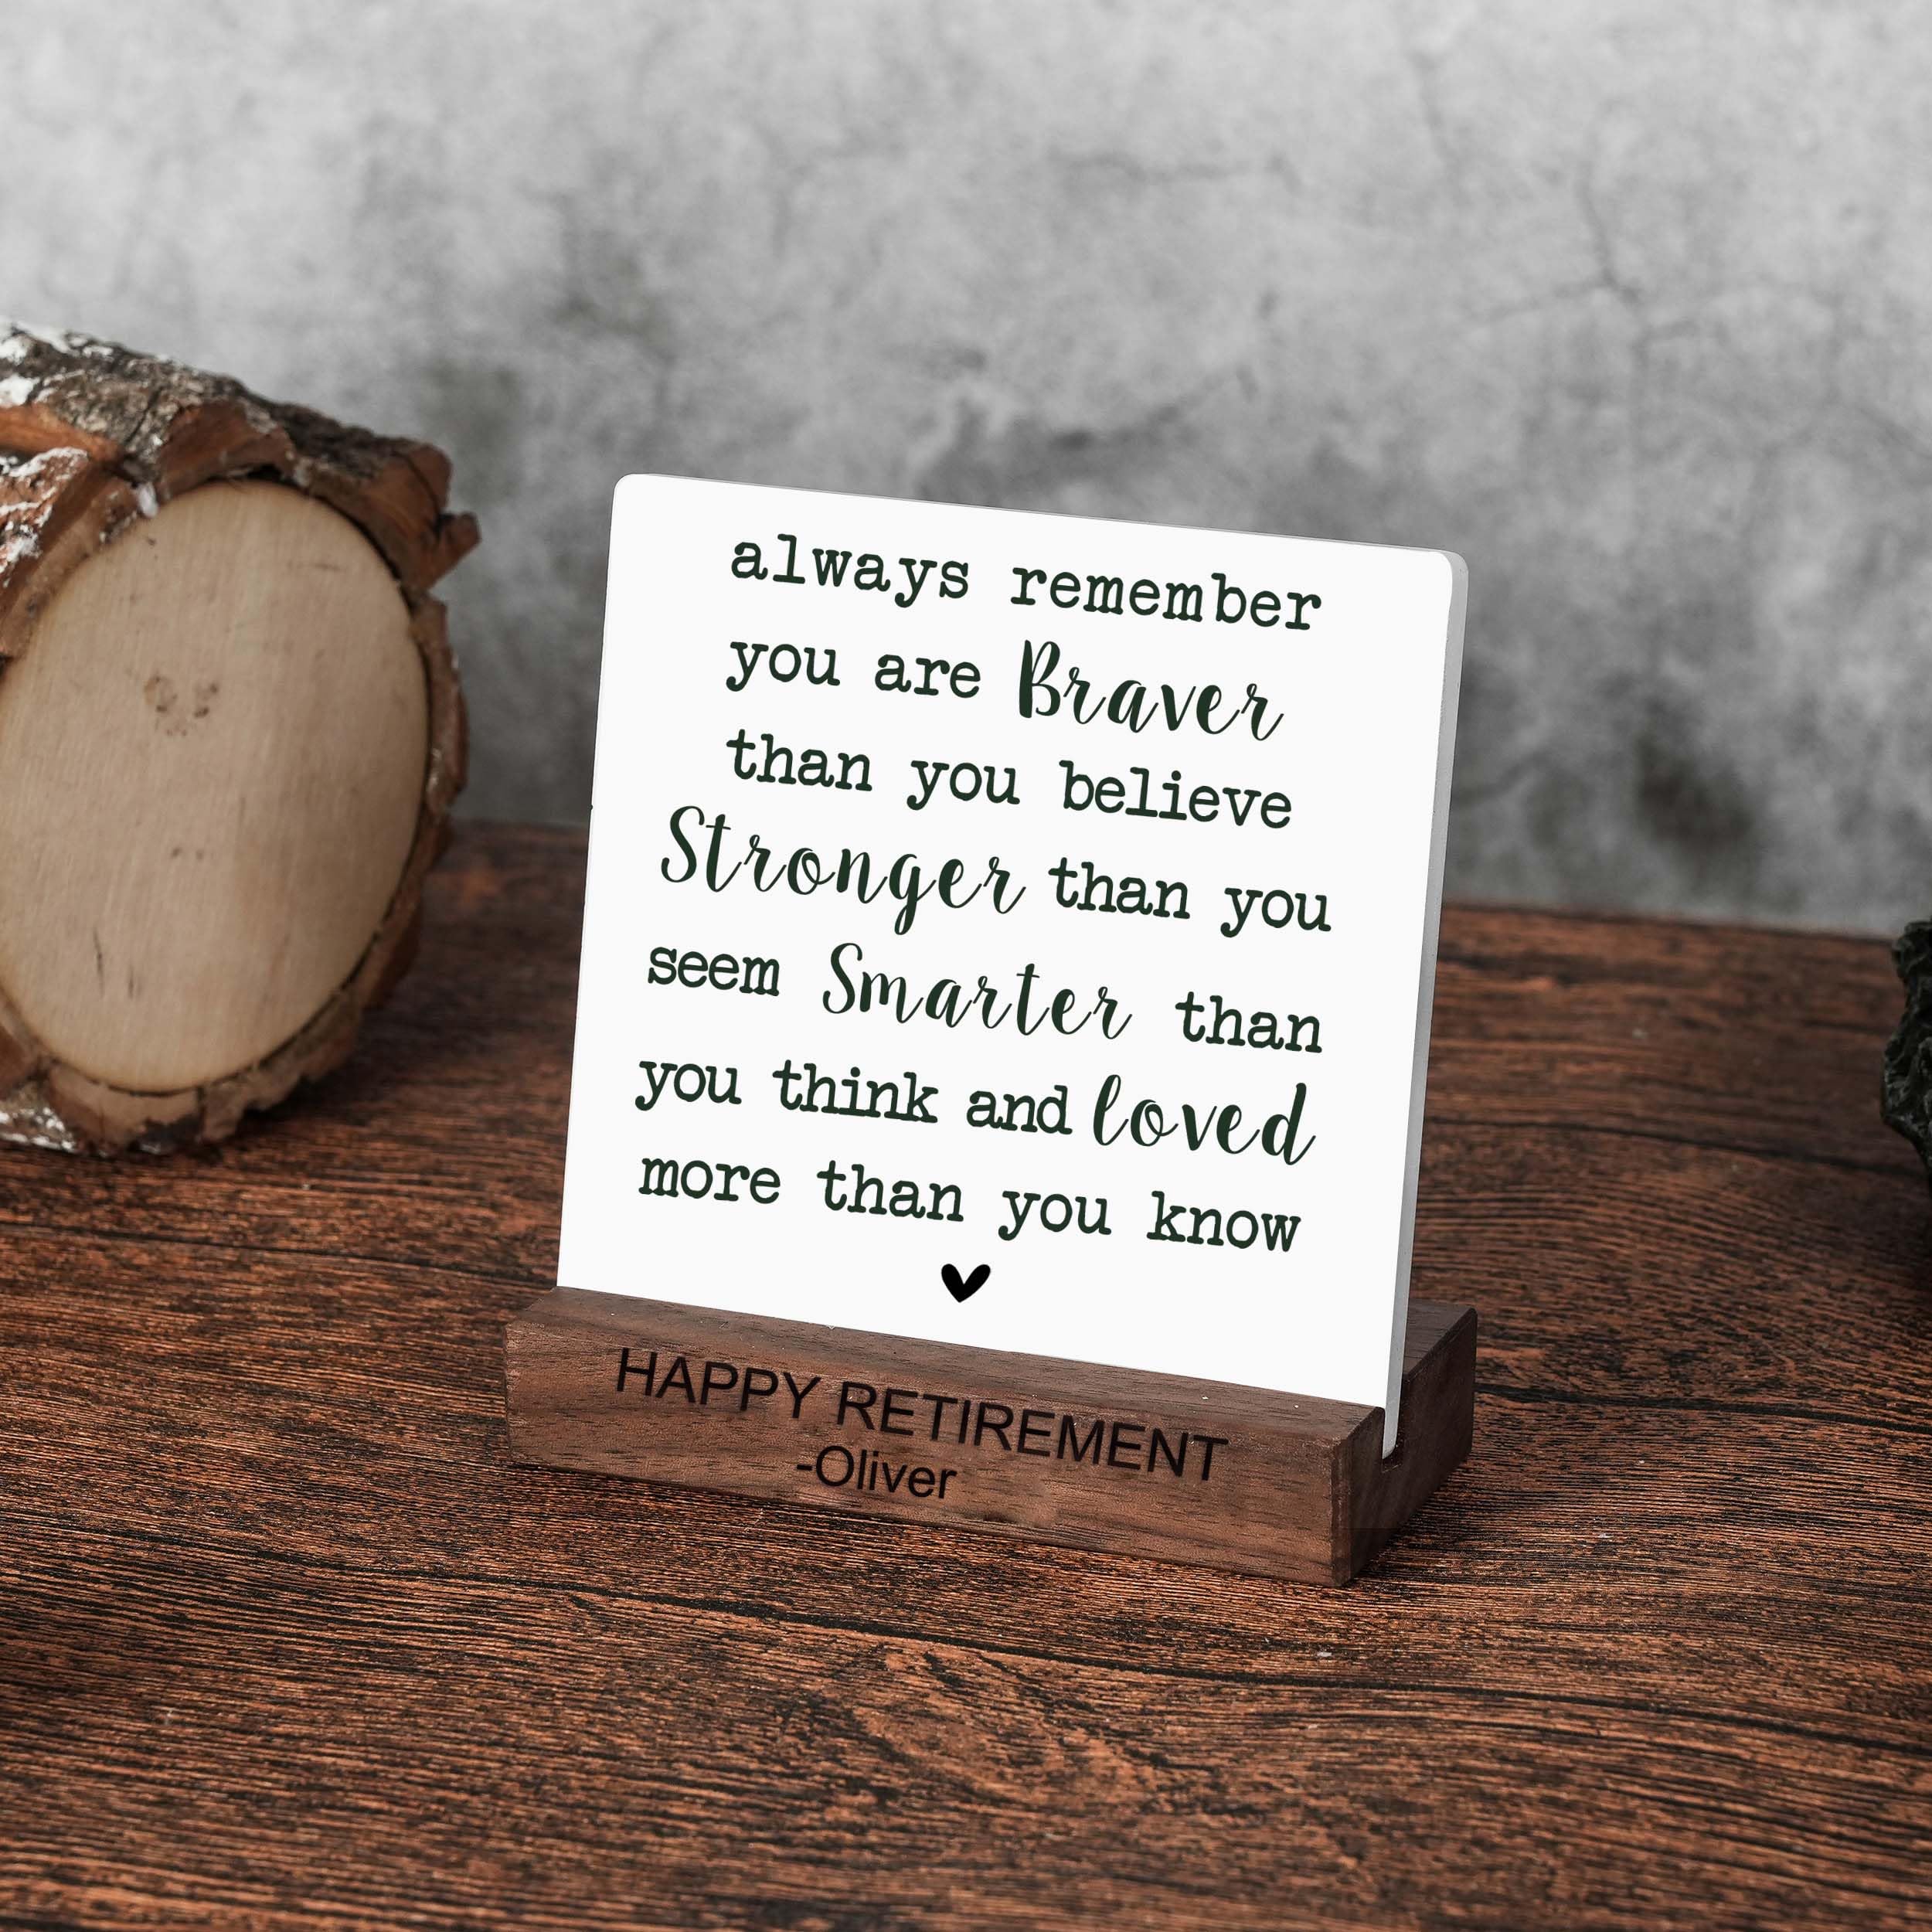 always remember
you are Braver
than you believe
Stronger than you
seem Smarter than
you think and loved
more than you know
HAPPY RETIREMENT
-Oliver